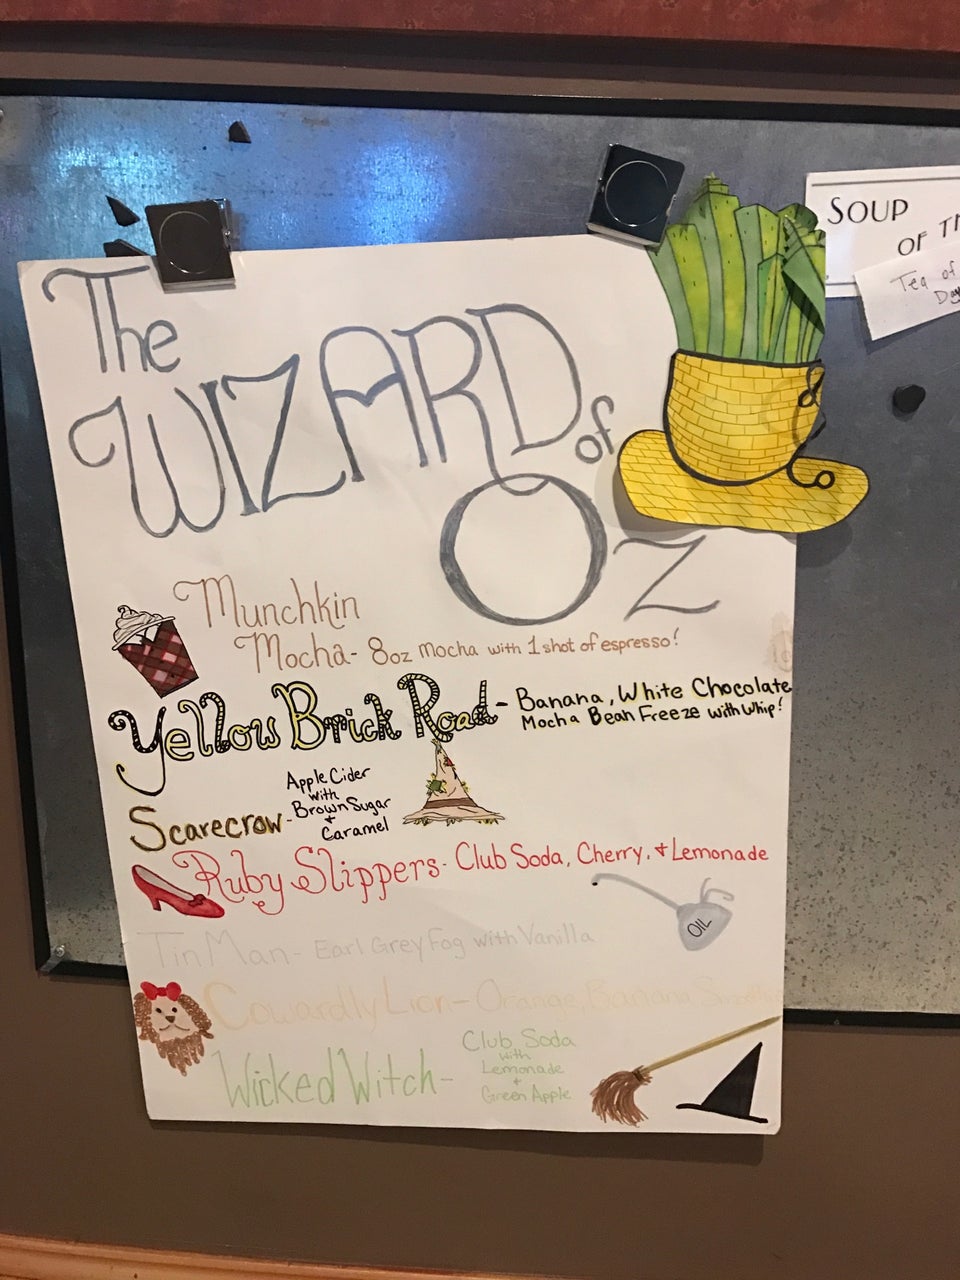 The
WIZARD of
OZ
SOUP
OF
Tea of
Day
Munchkin
Mocha- 8oz Mocha with 1 shot of espresso!
Yellow Brick Road - Banana, White Chocolate
Mocha Bean Freeze with Whip!
Scarecrow- Apple Cider
with
Brown Sugar
+
Caramel
Ruby Slippers- Club Soda, Cherry, + Lemonade
OIL
Tin Man- Earl Grey Fog with Vanilla
Cowardly Lion- Orange, Banana Smoothie
Wicked Witch- Club Soda
with
Lemonade
+
Green Apple